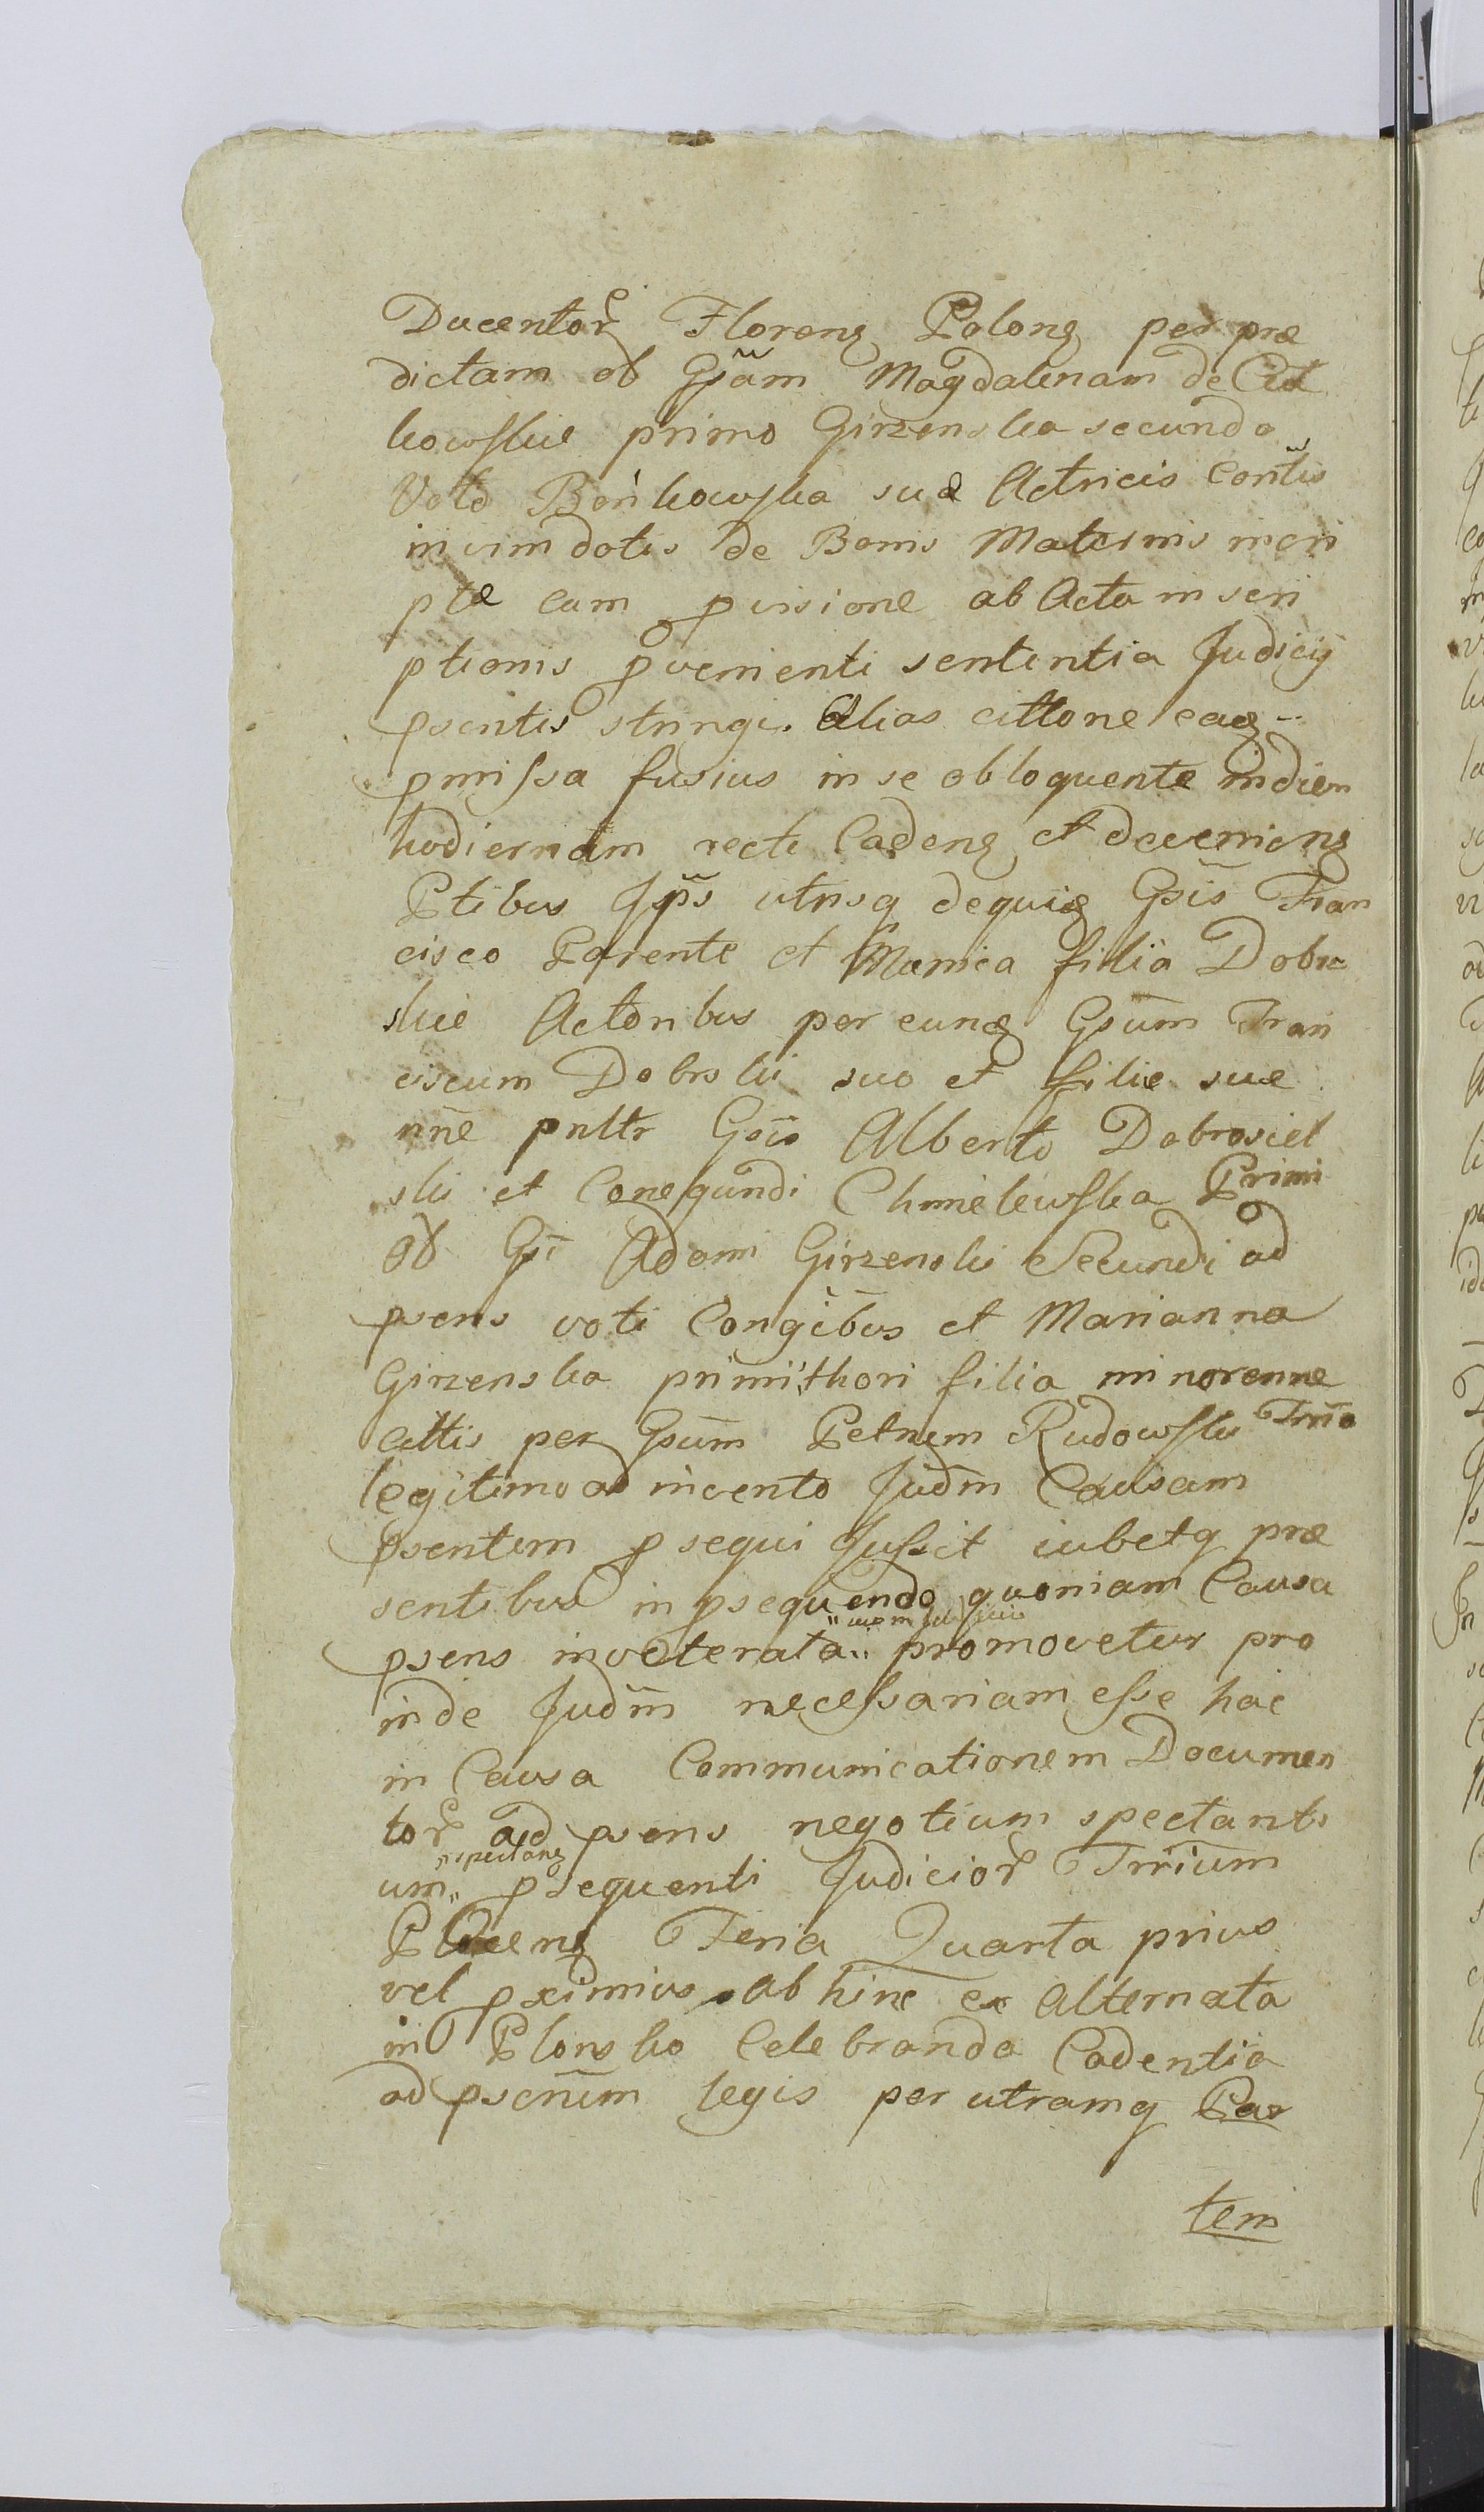 Ducentor Floreng Polong per præ
dictam ob Gsãm Magdalenam de
kowskie primo Girzenska secundo
Voto Bońkowska suæ Actricis Contis
in vim dotis de Bonis Maternis inscri
ptæ cum pvisione ab Acta inscri
ptionis pvenienti sententia Judicij
psentis stringi. Alias cittone eaq --
pmissa fusius in se obloquente in diem
hodiernam recte Cadeng et deveniens
Ptibus Jpis utrisq dequiq Gsis Fran
cisco Parente et filia Dobr
skie Actoribus per eunq Gsum Fran
ciscum Dobrski suo et filie sue
nñe pnltr Gsio Alberto Dobrosiel
ski et Conegundi Chmielewska Primi
olb Gsi Adami Girzenski Secundi ad
psens voti Congibus et Marianna
Girzenska primi thori filia minorenne
Cittis per Gsum Petrum Rudowski Trrio
legitimo ad invento Judm Causam
psentem psequi Jussit iubetq præ
sentibus in psequendo quoniam Causa
psens inveterata " promovetur pro
inde Judm necessariam esse hac
in Causa Communicationem Documen
tor ad psens negotium spectanti
"spectang
um " psequenti Judicior Trrium
Ploceng Feria Quarta prius
vel pximius ab hinc ex Alternata
in Plonsko Celebranda Cadentia
ad pscrium legis per utramq Par
tem